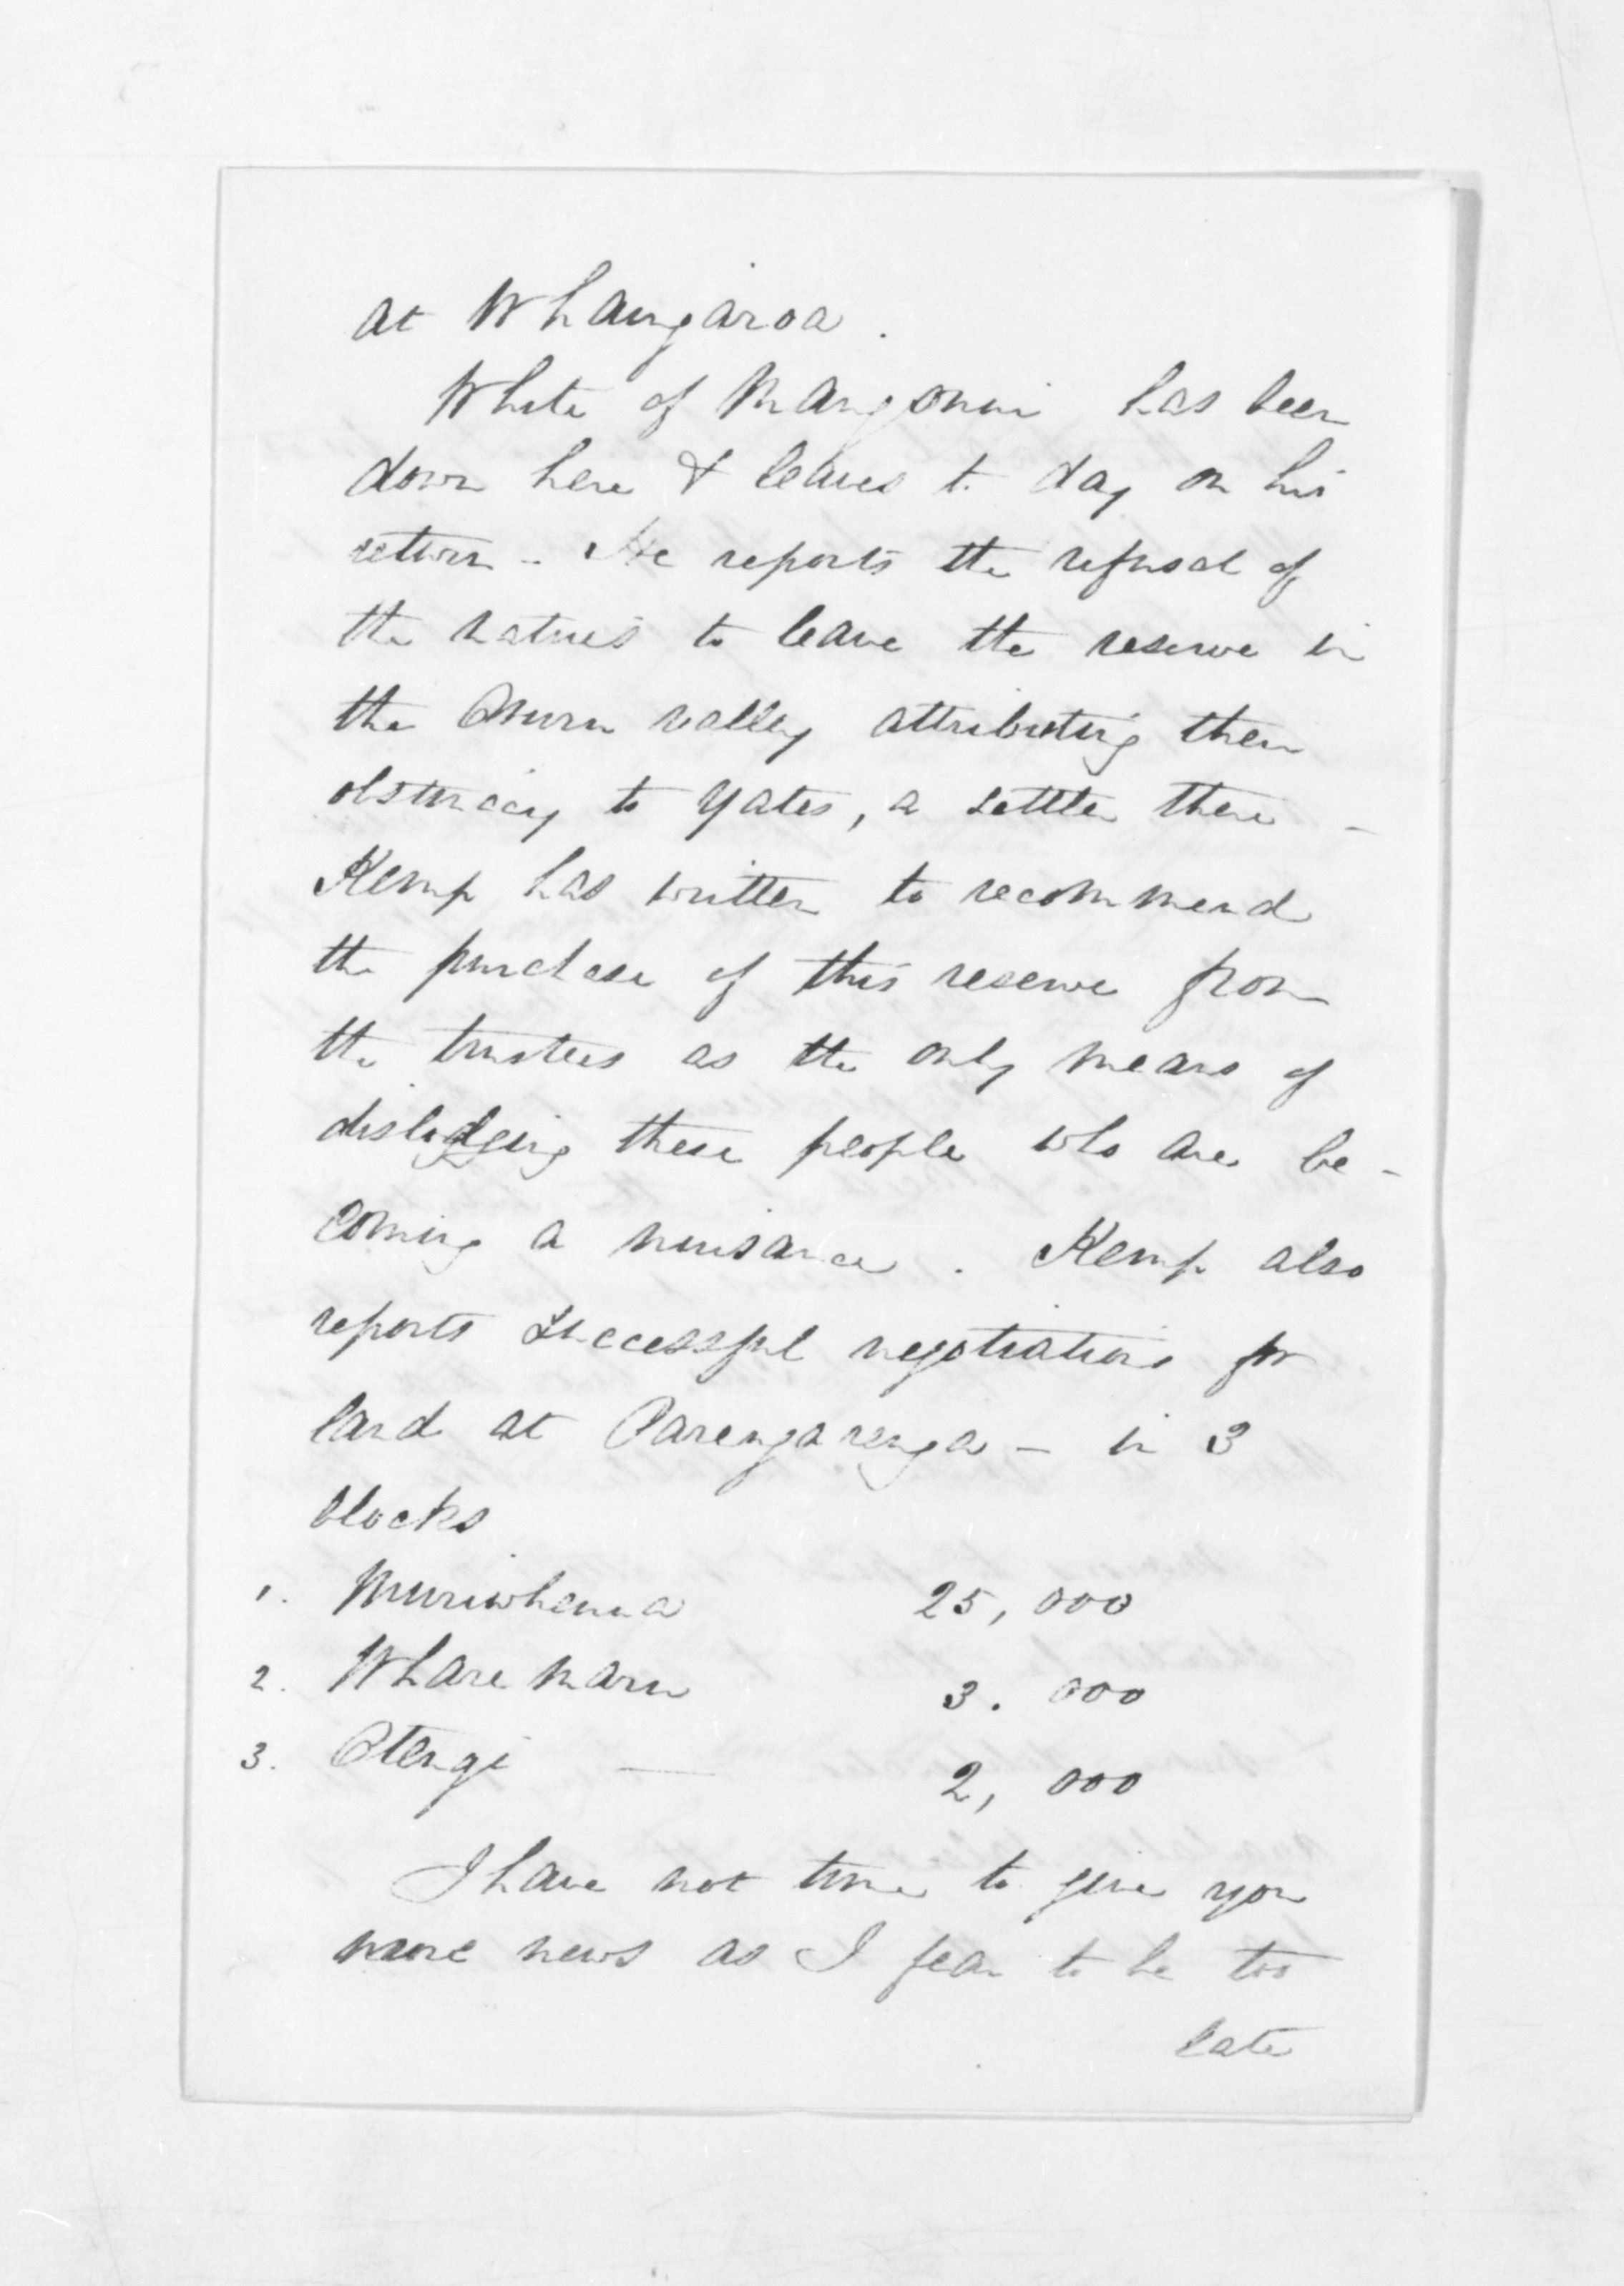 at Whangaroa.
White of Mangonui has been
down here & leaves to day on his
return - He reports the refusal of
the natives to leave the reserve in
the Oruru valley attributing their
obstinacy to Yates, a settler there -
Kemp has written to recommend
the purchase of this reserve from
the trustees as the only means of
dislodging these people who are be-
coming a nuisance. Kemp also
reports successful negotiations for
land at Parengarenga - in 3
blocks
1. Muriwhenua 25,000
2. Whare maru 3.000
3. Otengi — 2,000
I have not time to give you
more news as I fear to be too
late